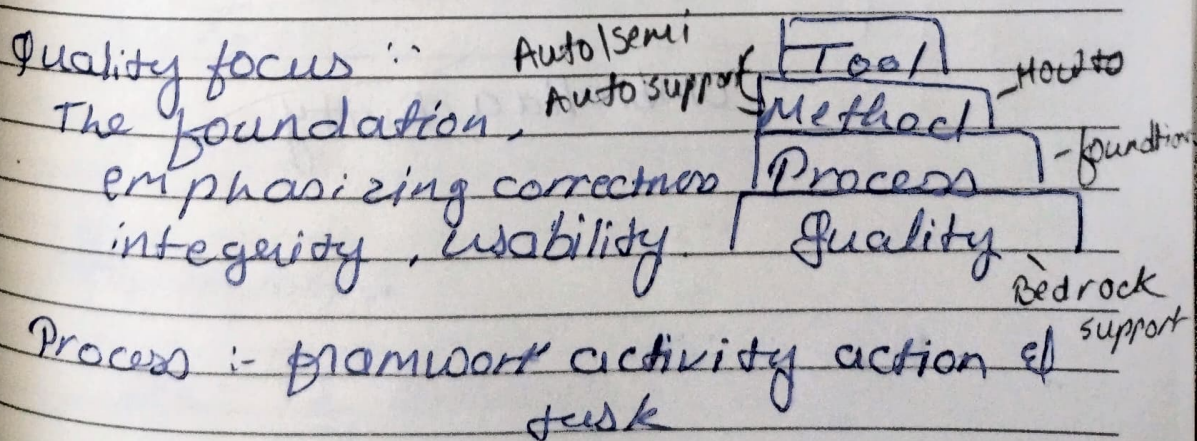 Quality focus :-
The foundation,
emphasizing correctness
integerity, usability.
Auto/semi
Auto support
Tool
Method
Process
Quality
How to
- foundtion
Bedrock
support
Process :- framwork activity action &
tusk